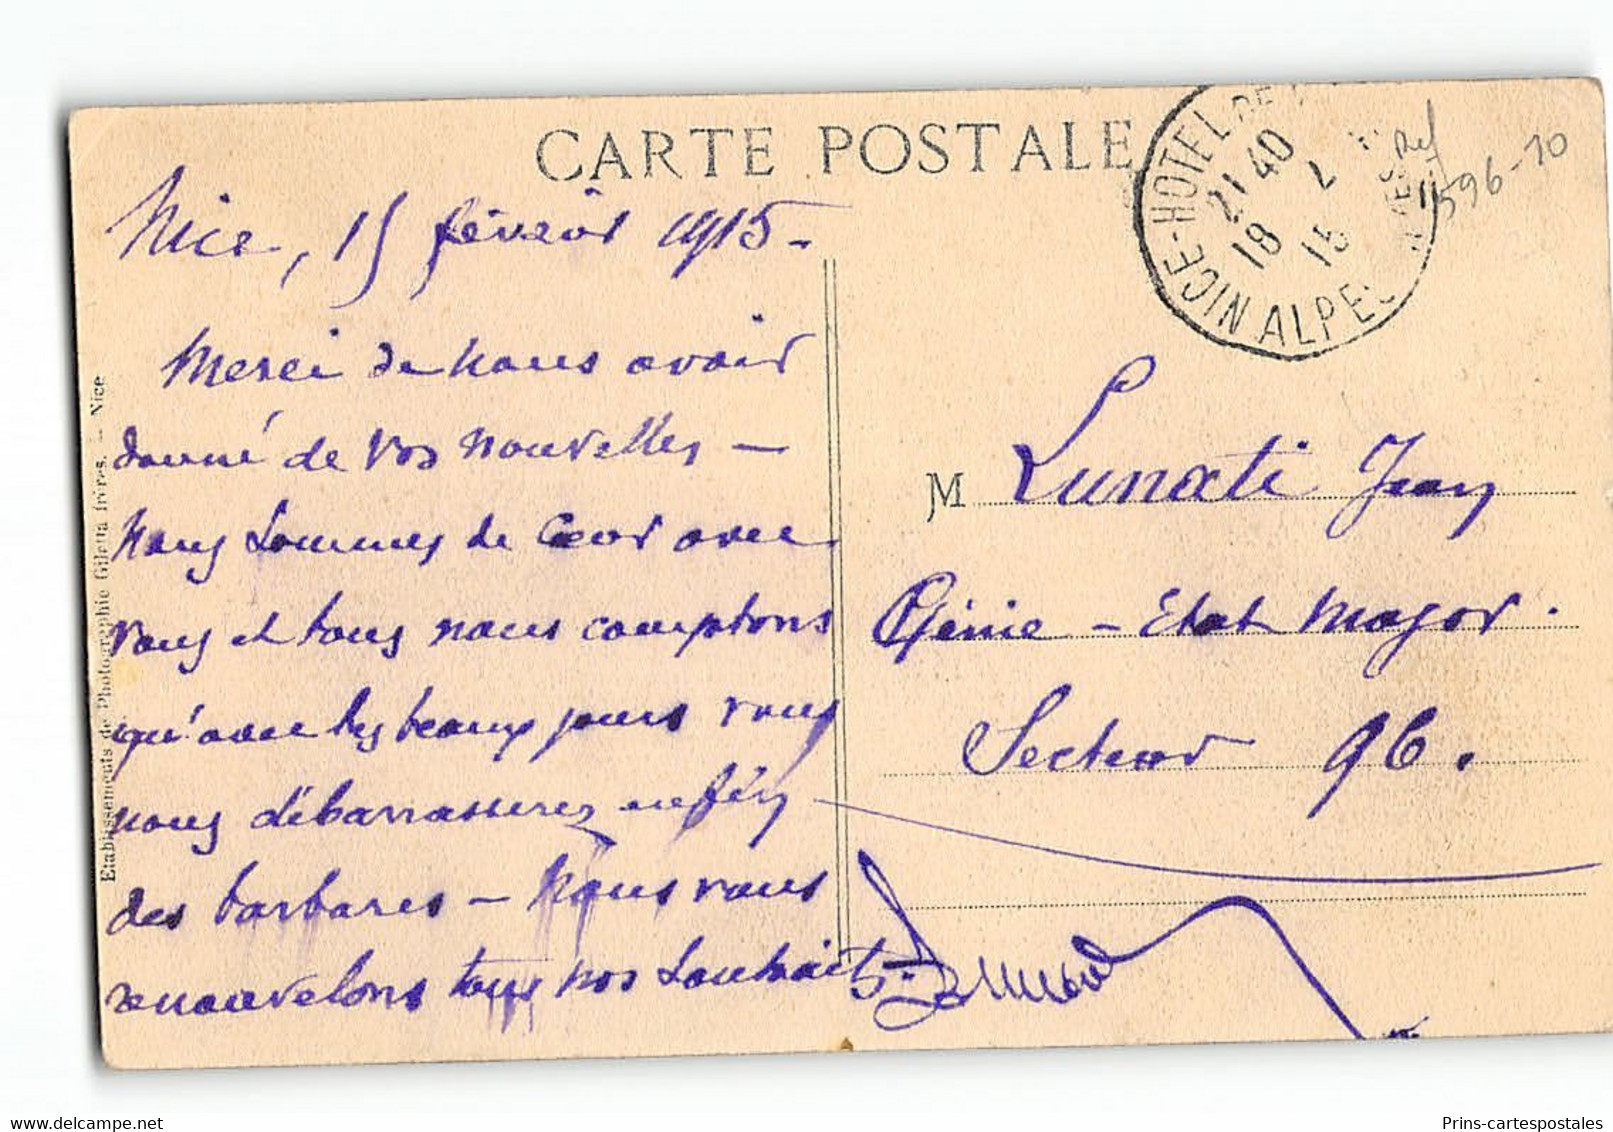 CARTE POSTALE
NICE-HOTEL DE
21 40
18 2 15
ALPES MMES
Ref
1596-10
Nice, 15 février 1915-
Merci de nous avoir
donné de vos nouvelles -
Nous sommes de Cœur avec
vous et tous nous comptons
qu'avec les beaux jours vous
nous débarrasserez enfin
des barbares - Nous vous
renouvelons tous nos souhaits.
M Lunati Jean
Génie - Etat Major.
Secteur 96.
Etablissements de Photographie Giletta frères. - Nice
Prins-cartespostales